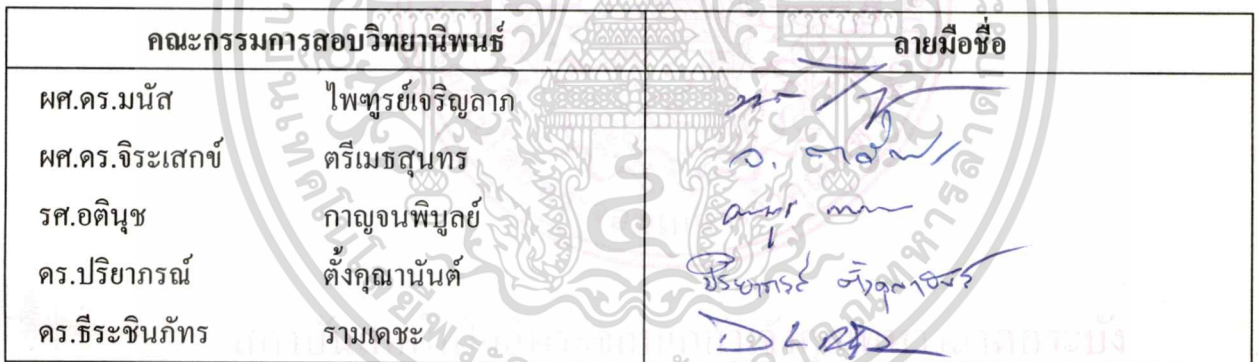 คณะกรรมการสอบวิทยานิพนธ์ ลายมือชื่อ
ผศ.ดร.มนัส ไพฑูรย์เจริญลาภ
ผศ.ดร.จิระเสกข์ ตรีเมธสุนทร
รศ.อตินุช กาญจนพิบูลย์
ดร.ปริยาภรณ์ ตั้งคุณานันต์ ปริยาภรณ์ ตั้งคุณานันต์
ดร.ธีระชินภัทร รามเดชะ